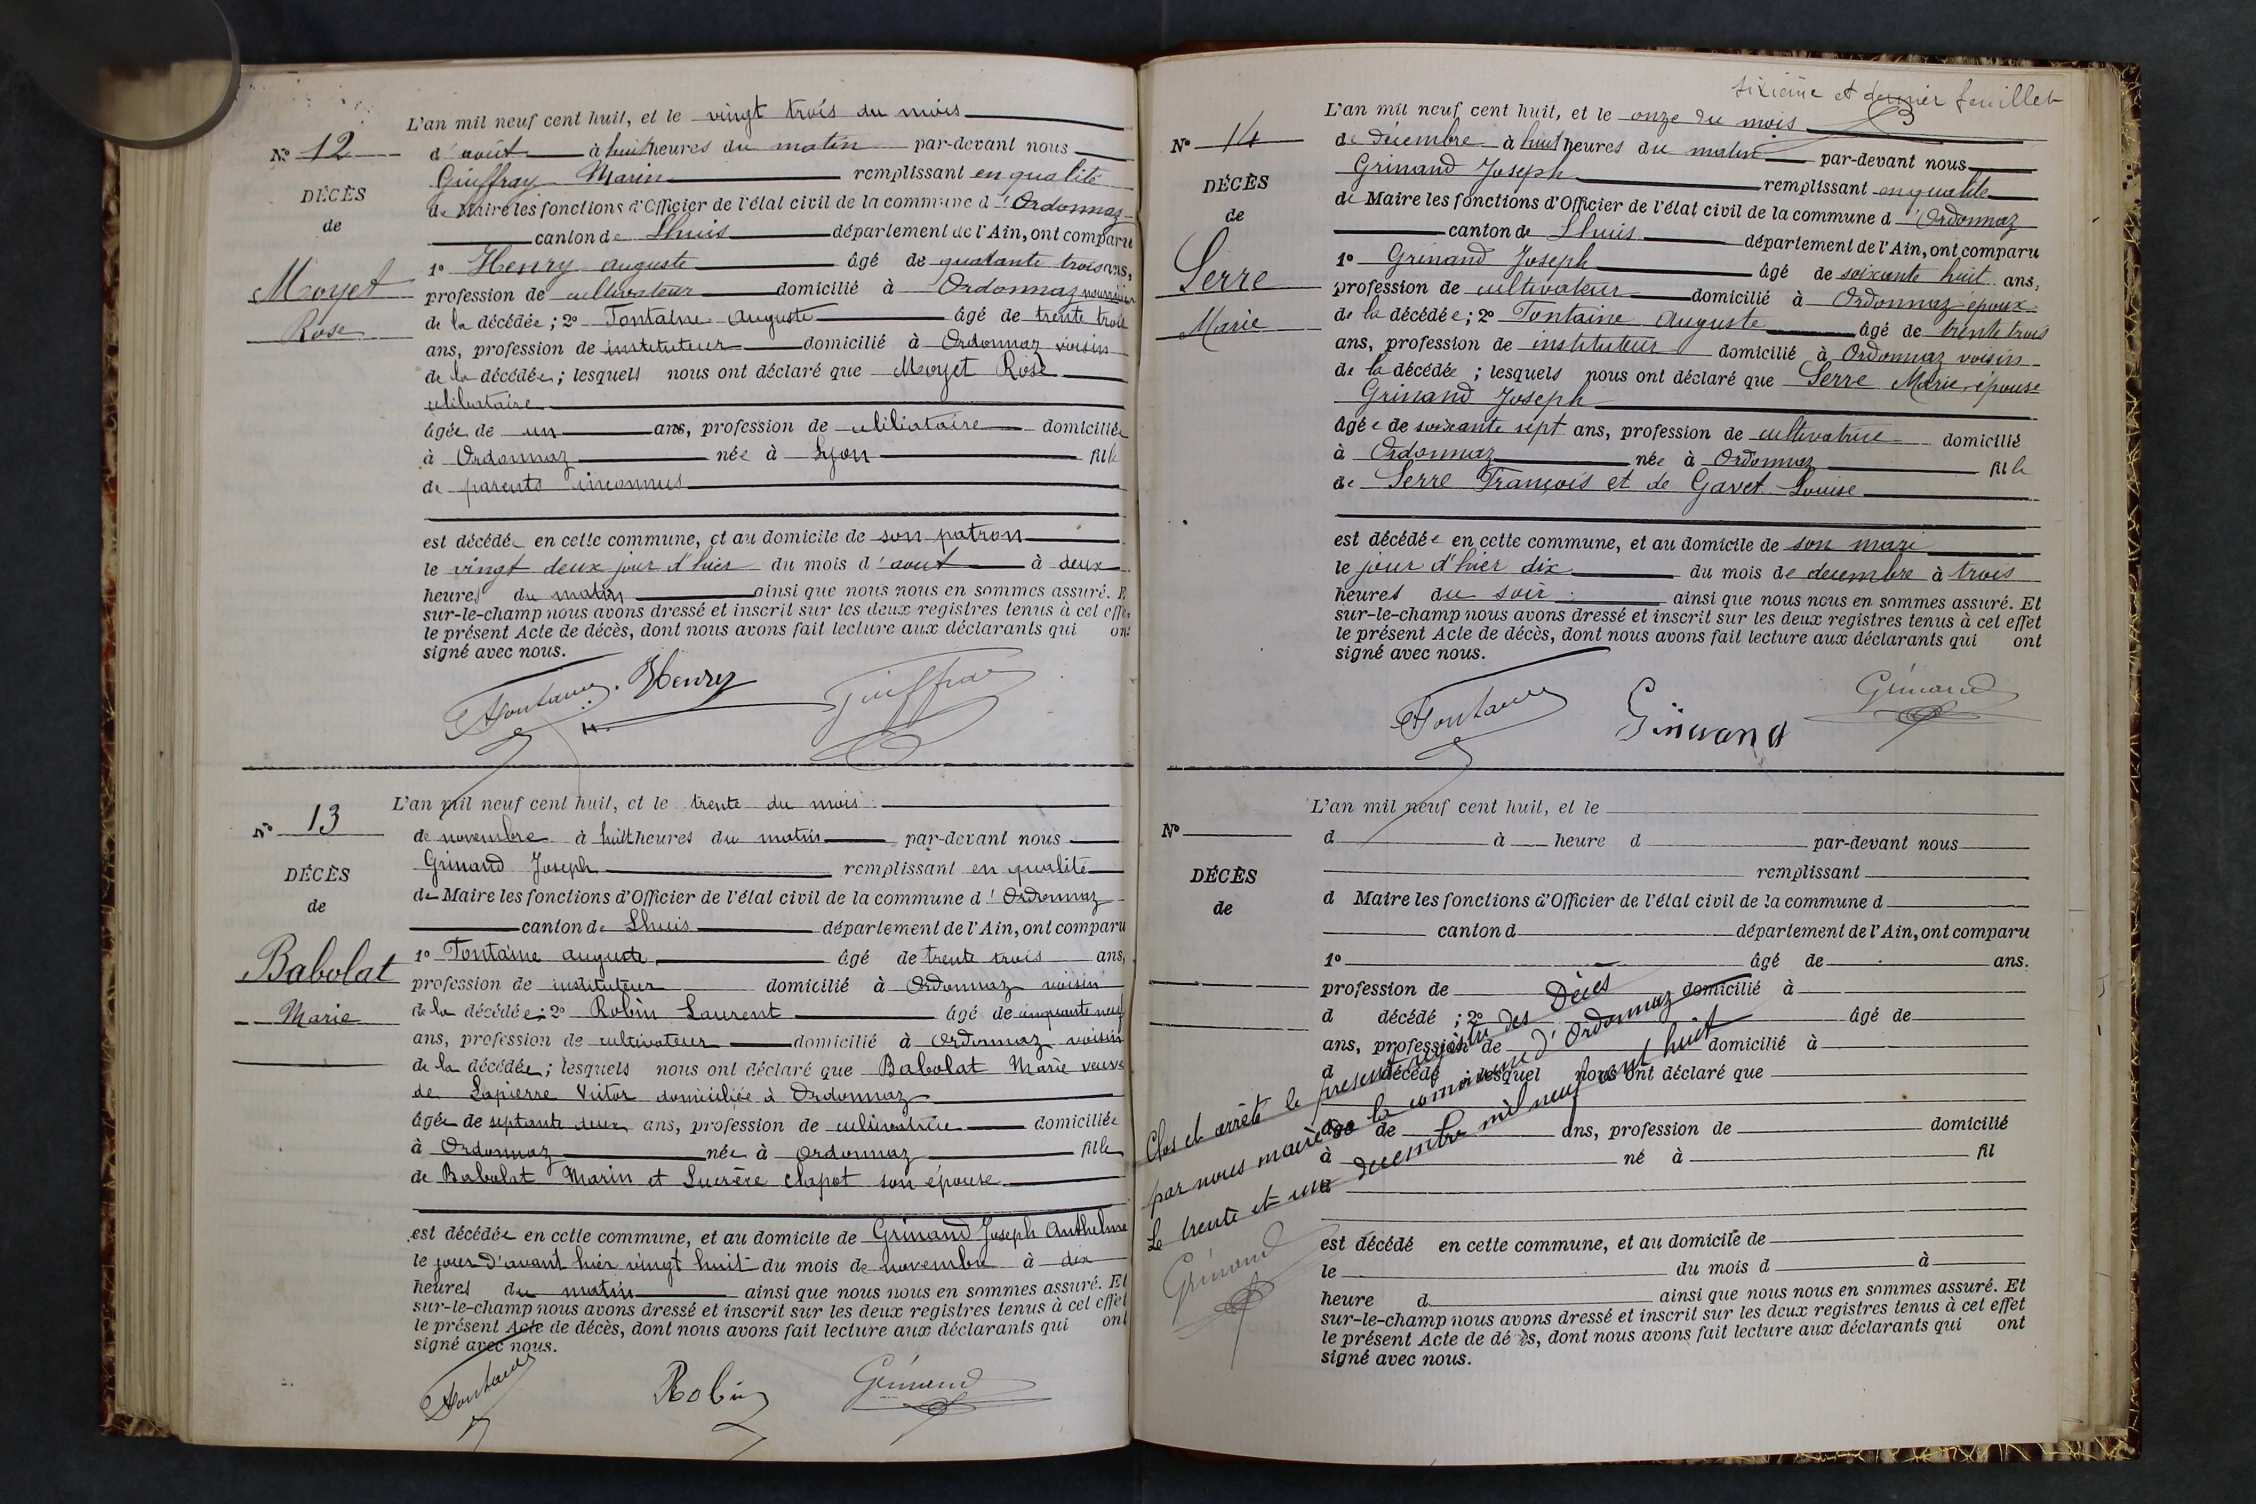 L'an mil neuf cent huit, et le vingt trois du mois
N° 12
d'août à huit heures du matin par-devant nous
Guiffray Marin remplissant en qualité
DÉCÈS
de Maire les fonctions d'Officier de l'état civil de la commune d'Ordonnaz
de
canton de Lhuis département de l'Ain, ont comparu
1° Henry Auguste âgé de quarante trois ans,
Moyet
profession de cultivateur domicilié à Ordonnaz nourricier
Rose
de la décédée; 2° Fontaine Auguste âgé de trente trois
ans, profession de instituteur domicilié à Ordonnaz voisin
de la décédée; lesquels nous ont déclaré que Moyet Rose
célibataire
âgée de un ans, profession de célibataire domiciliée
à Ordonnaz née à Lyon fille
de parents inconnus
est décédée en cette commune, et au domicile de son patron
le vingt deux jour d'hier du mois d'août à deux
heures du matin ainsi que nous nous en sommes assuré. E
sur-le-champ nous avons dressé et inscrit sur les deux registres tenus à cet effet
le présent Acte de décès, dont nous avons fait lecture aux déclarants qui ont
signé avec nous.
Fontaine Henry Guiffray
L'an mil neuf cent huit, et le trente du mois
N° 13
de novembre à huit heures du matin par-devant nous
Grinand Joseph remplissant en qualité
DÉCÈS
de Maire les fonctions d'Officier de l'état civil de la commune d'Ordonnaz
de
canton de Lhuis département de l'Ain, ont comparu
1° Fontaine Auguste âgé de trente trois ans,
Babolat
profession de instituteur domicilié à Ordonnaz voisin
Marie
de la décédée; 2° Robin Laurent âgé de cinquante neuf
ans, profession de cultivateur domicilié à Ordonnaz voisin
de la décédée; lesquels nous ont déclaré que Babolat Marie veuve
de Lapierre Victor domiciliée à Ordonnaz
âgée de septante deux ans, profession de cultivatrice domiciliée
à Ordonnaz née à Ordonnaz fille
de Babolat Marin et Lucrèce Chapot son épouse
est décédée en cette commune, et au domicile de Grinand Joseph Anthelme
le jour d'avant hier vingt huit du mois de novembre à dix
heures du matin ainsi que nous nous en sommes assuré. Et
sur-le-champ nous avons dressé et inscrit sur les deux registres tenus à cet effet
le présent Acte de décès, dont nous avons fait lecture aux déclarants qui ont
signé avec nous.
Fontaine Robin Grinand
sixième et dernier feuillet
L'an mil neuf cent huit, et le onze du mois
N° 14
de décembre à huit heures du matin par-devant nous
Grinand Joseph remplissant en qualité
DÉCÈS
de Maire les fonctions d'Officier de l'état civil de la commune d'Ordonnaz
de
canton de Lhuis département de l'Ain, ont comparu
1° Grinand Joseph âgé de soixante huit ans,
Serre
profession de cultivateur domicilié à Ordonnaz époux
Marie
de la décédée; 2° Fontaine Auguste âgé de trente trois
ans, profession de instituteur domicilié à Ordonnaz voisin
de la décédée; lesquels nous ont déclaré que Serre Marie épouse
Grinand Joseph
âgée de soixante sept ans, profession de cultivatrice domicilié
à Ordonnaz née à Ordonnaz fille
de Serre François et de Gavet Louise
est décédée en cette commune, et au domicile de son mari
le jour d'hier dix du mois de décembre à trois
heures du soir ainsi que nous nous en sommes assuré. Et
sur-le-champ nous avons dressé et inscrit sur les deux registres tenus à cet effet
le présent Acte de décès, dont nous avons fait lecture aux déclarants qui ont
signé avec nous.
Fontaine Grinand Grinand
L'an mil neuf cent huit, et le
N°
d à heure d par-devant nous
remplissant
DÉCÈS
d Maire les fonctions d'Officier de l'état civil de la commune d
de
canton d département de l'Ain, ont comparu
1° âgé de ans.
profession de domicilié à
d décédé ; 2° âgé de
ans, profession de domicilié à
d décédé ; lesquel nous ont déclaré que
âgé de ans, profession de domicilié
à né à fil
de
Clos et arrêté le présent registre des Décès
par nous maire de la commune d'Ordonnaz
Le trente et un décembre mil neuf cent huit
Grinand
est décédé en cette commune, et au domicile de
le du mois d à
heure d ainsi que nous nous en sommes assuré. Et
sur-le-champ nous avons dressé et inscrit sur les deux registres tenus à cet effet
le présent Acte de décès, dont nous avons fait lecture aux déclarants qui ont
signé avec nous.